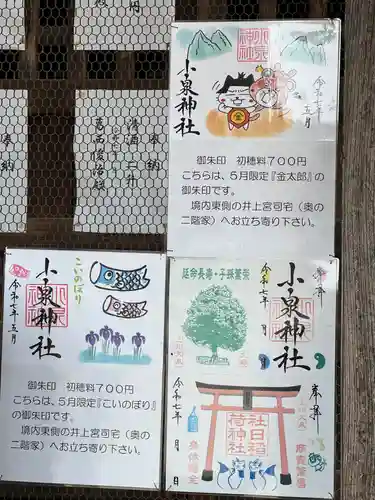 奉納
奉納
清酒 二升
葛西俊治様
奉納
小泉神社
小泉神社
令和七年五月
御朱印 初穂料700円
こちらは、5月限定『金太郎』の
御朱印です。
境内東側の井上宮司宅（奥の
二階家）へお立ち寄り下さい。
こいのぼり
小泉神社
小泉神社
令和七年五月
御朱印 初穂料700円
こちらは、5月限定『こいのぼり』
の御朱印です。
境内東側の井上宮司宅（奥の
二階家）へお立ち寄り下さい。
延命長寿・子孫繁栄
奉拝
小泉神社
令和七年 月 日
奉拝
社日稲荷神社
令和七年 月 日